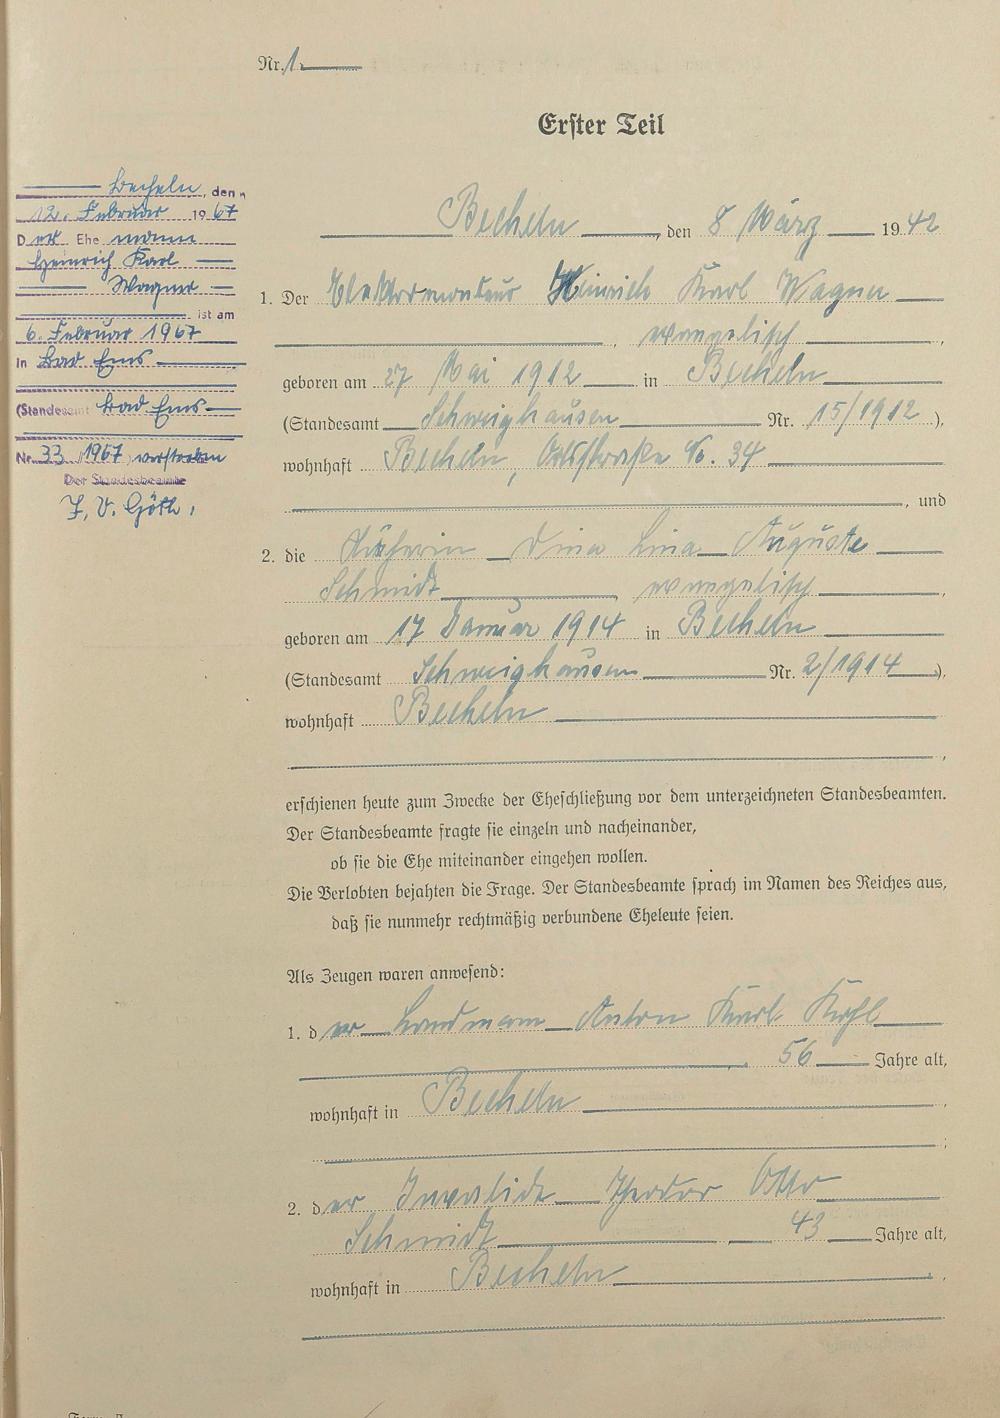 Nr. 1.
Erster Teil
Becheln, den
12. Februar 1967
Der Ehemann
Heinrich Karl
Wagner
ist am
6. Februar 1967
in Bad Ems
(Standesamt Bad Ems
Nr. 33/1967) verstorben
Der Standesbeamte
I. V. Göth.
Becheln, den 8 März 1942
1. Der Elektromonteur Heinrich Karl Wagner
, evangelisch,
geboren am 27 Mai 1912 in Becheln
(Standesamt Schweighausen Nr. 15/1912),
wohnhaft Becheln, Ortsstraße No. 34
, und
2. die Näherin Dina Lina Auguste
Schmidt, evangelisch,
geboren am 17 Januar 1914 in Becheln
(Standesamt Schweighausen Nr. 2/1914),
wohnhaft Becheln
,
erschienen heute zum Zwecke der Eheschließung vor dem unterzeichneten Standesbeamten.
Der Standesbeamte fragte sie einzeln und nacheinander,
ob sie die Ehe miteinander eingehen wollen.
Die Verlobten bejahten die Frage. Der Standesbeamte sprach im Namen des Reiches aus,
daß sie nunmehr rechtmäßig verbundene Eheleute seien.
Als Zeugen waren anwesend:
1. der Landmann Anton Karl
, 56 Jahre alt,
wohnhaft in Becheln,
;
2. der Invalide Theodor Otto
Schmidt, 43 Jahre alt,
wohnhaft in Becheln,